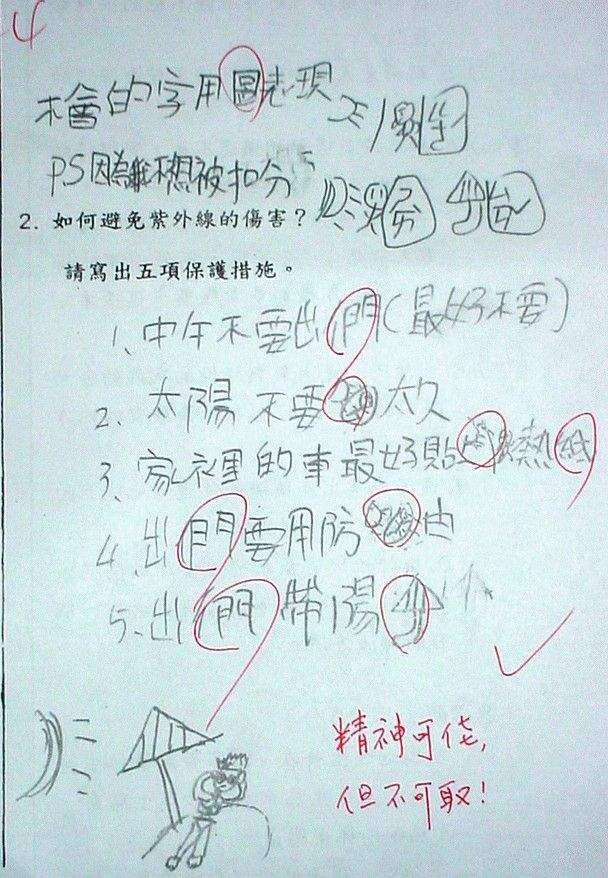 不會的字用圖表現
PS因為誰不想被扣分
2. 如何避免紫外線的傷害?
請寫出五項保護措施。
1、中午不要出門(最好不要)
2、太陽不要 太久
3、家裡的車最好貼 熱紙
4、出門要用防 油
5、出門帶陽
精神可佳,
但不可取!